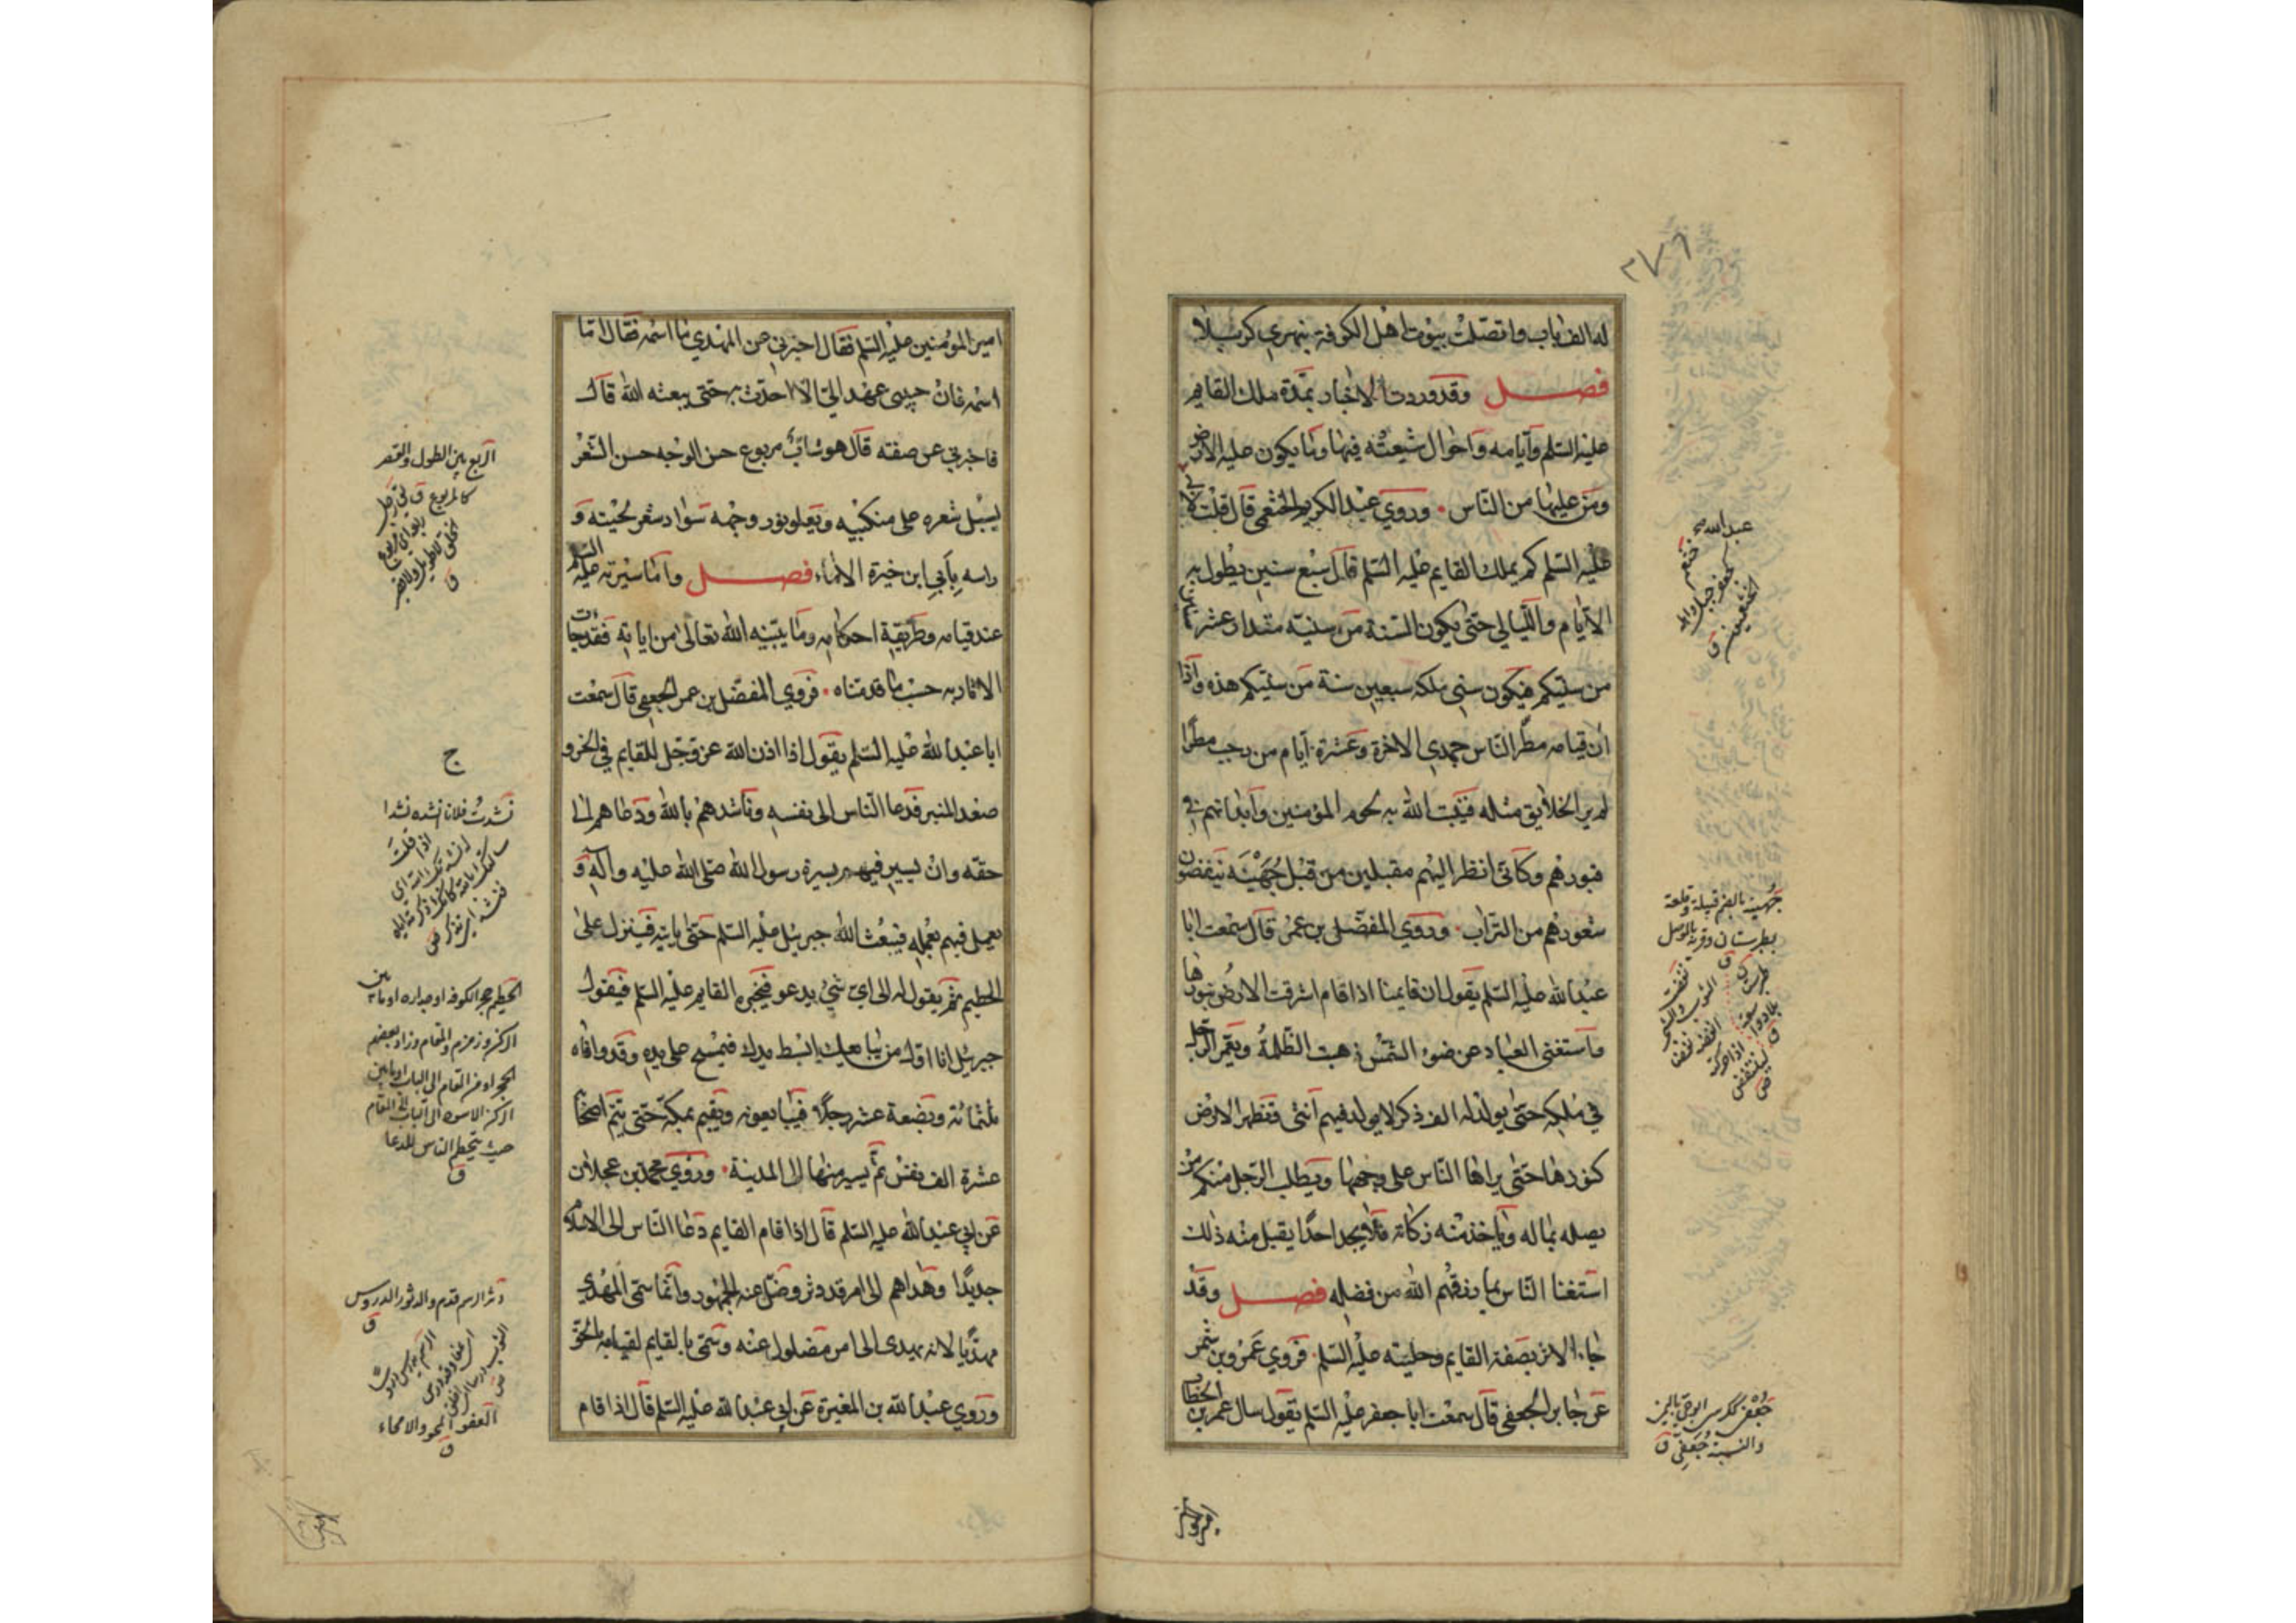 ٢٧٦
له الف باب واتصلت بيوت اهل الكوفة بنهري كربلا
فصل وقد وردت الاخبار بمدة ملك القايم
عليه السلم وايامه واحوال شيعته فيها وما يكون عليه الارض
ومن عليها من الناس . وروي عبد الكريم الخثعمي قال قلت لابي
عبد الله عليه السلم كم يملك القايم عليه السلم قال سبع سنين يطول به
الايام والليالي حتى يكون السنة من سنيه مقدار عشر سنين
من سنيكم فيكون سني ملكه سبعين سنة من سنيكم هذه واذا
ان قيامه مطر الناس جمدي الاخرة وعشرة ايام من رجب مطرا
لم ير الخلايق مثله فينبت الله به لحوم المؤمنين وابدانهم في
قبورهم وكاني انظر اليهم مقبلين من قبل جهينة ينفضون
شعورهم من التراب . وروي المفضل بن عمر قال سمعت ابا
عبد الله عليه السلم يقول ان قايمنا اذا قام اشرقت الارض بنورها
واستغنى العباد عن ضوء الشمس ذهبت الظلمة ويعمر الرجل
في ملكه حتى يولد له الف ذكر لا يولد فيهم انثى فتظهر الارض
كنوزها حتى يراها الناس على وجهها ويطلب الرجل منكم من
يصله بماله وياخذ منه زكاته فلا يجد احدا يقبل منه ذلك
استغنا الناس بما رزقهم الله من فضله فصل وقد
جاء الاثر بصفة القايم وحليته عليه السلم . فروي عمرو بن شمر
عن جابر الجعفي قال سمعت ابا جعفر عليه السلم يقول سال عمر بن الخطاب
عبد الله
خثعم
كجعفر جبل
جهينة بالضم قبيلة وقلعة
بطبرستان وقرية بالموصل
ق
جعفي ككرسي ابو حي باليمن
والنسبة جعفي ق
امير المؤمنين عليه السلم فقال اخبرني عن المهدي ما اسمه فقال اما
اسمه فان حبيبي عهد الي الا احدث به حتى يبعثه الله قال
فاخبرني عن صفته قال هو شاب مربوع حسن الوجه حسن الشعر
يسبل شعره على منكبيه ويعلو نور وجهه سواد شعر لحيته و
راسه بابي ابن خيرة الاماء فصل واما سيرته عليه السلم
عند قيامه وطريقة احكامه وما يبينه الله تعالى من اياته فقد جاءت
الاثار به حسب ما قدمناه . فروي المفضل بن عمر الجعفي قال سمعت
ابا عبد الله عليه السلم يقول اذا اذن الله عز وجل للقايم في الخرو
ج
صعد المنبر فدعا الناس الى نفسه وناشدهم بالله ودعاهم الى
حقه وان يسير فيهم بسيرة رسول الله صلى الله عليه وآله و
يعمل فيهم بعمله فيبعث الله جبريل عليه السلم حتى ياتيه فينزل على
الحطيم ثم يقول له الى اي شيء يدعو فيخبره القايم عليه السلم فيقول
جبريل انا اول من يبايعك ابسط يدك فيمسح على يده وقد وافاه
ثلثمائة وبضعة عشر رجلا فيبايعونه ويقيم بمكة حتى يتم اصحابه
عشرة الف نفس ثم يسير منها الى المدينة . وروي محمد بن عجلان
عن ابي عبد الله عليه السلم قال اذا قام القايم دعا الناس الى الاسلام
جديدا وهداهم الى امر قد دثر وضل عنه الجمهور وانما سمى المهدي
مهديا لانه يهدى الى امر مضلول عنه وسمى بالقايم لقيامه بالحق
وروي عبد الله بن المغيرة عن ابي عبد الله عليه السلم قال اذا قام
الربع بين الطول والقصر
كالمربوع ق
نشدت فلانا انشده نشدا
اذا قلت
الحطيم حجر الكوفه او جداره او ما بين
الركن وزمزم والمقام وزاد بعضهم
الحجر او من المقام الى الباب او ما بين
الركن الاسود الى الباب الى المقام
حيث يتحطم الناس للدعا
ق
دثر الرسم قدم والدثور الدروس
ق
العفو المحو والامحاء
ق